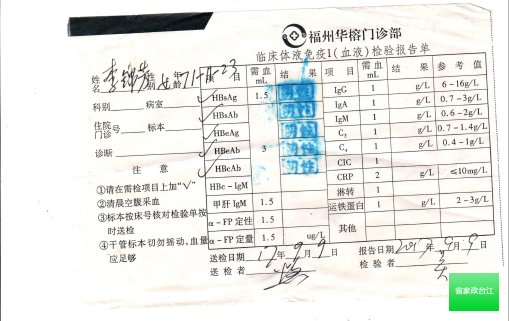 福州华榕门诊部
临床体液免疫1(血液)检验报告单
姓名 李锦芳 性别 女 年龄 71-11-23
科别 病室
住院门诊 号 标本
诊断
注 意
①请在需检项目上加“√”
②清晨空腹采血
③标本按床号核对检验单按时送检
④干管标本切勿摇动,血量应足够
项 目 需血mL 结 果 项 目 需血mL 结 果 参 考 值
√ HBsAg 1.5 阴性 IgG 1 g/L 6-16g/L
√ HBsAb 阴性 IgA 1 g/L 0.7-3g/L
√ HBeAg 3 阴性 IgM 1 g/L 0.6-2g/L
√ HBeAb 阴性 C₃ 1 g/L 0.7-1.4g/L
√ HBcAb 阴性 C₄ 1 g/L 0.4-1g/L
HBc-IgM CIC 1
甲肝 IgM 1.5 CRP 2 g/L ≤10mg/L
α-FP 定性 1.5 淋转 1
α-FP 定量 1.5 ug/L 运铁蛋白 1 g/L 2-3g/L
其他
送检日期 17年9月9日 报告日期 2017年9月9日
送检者 检验者
省家政台江